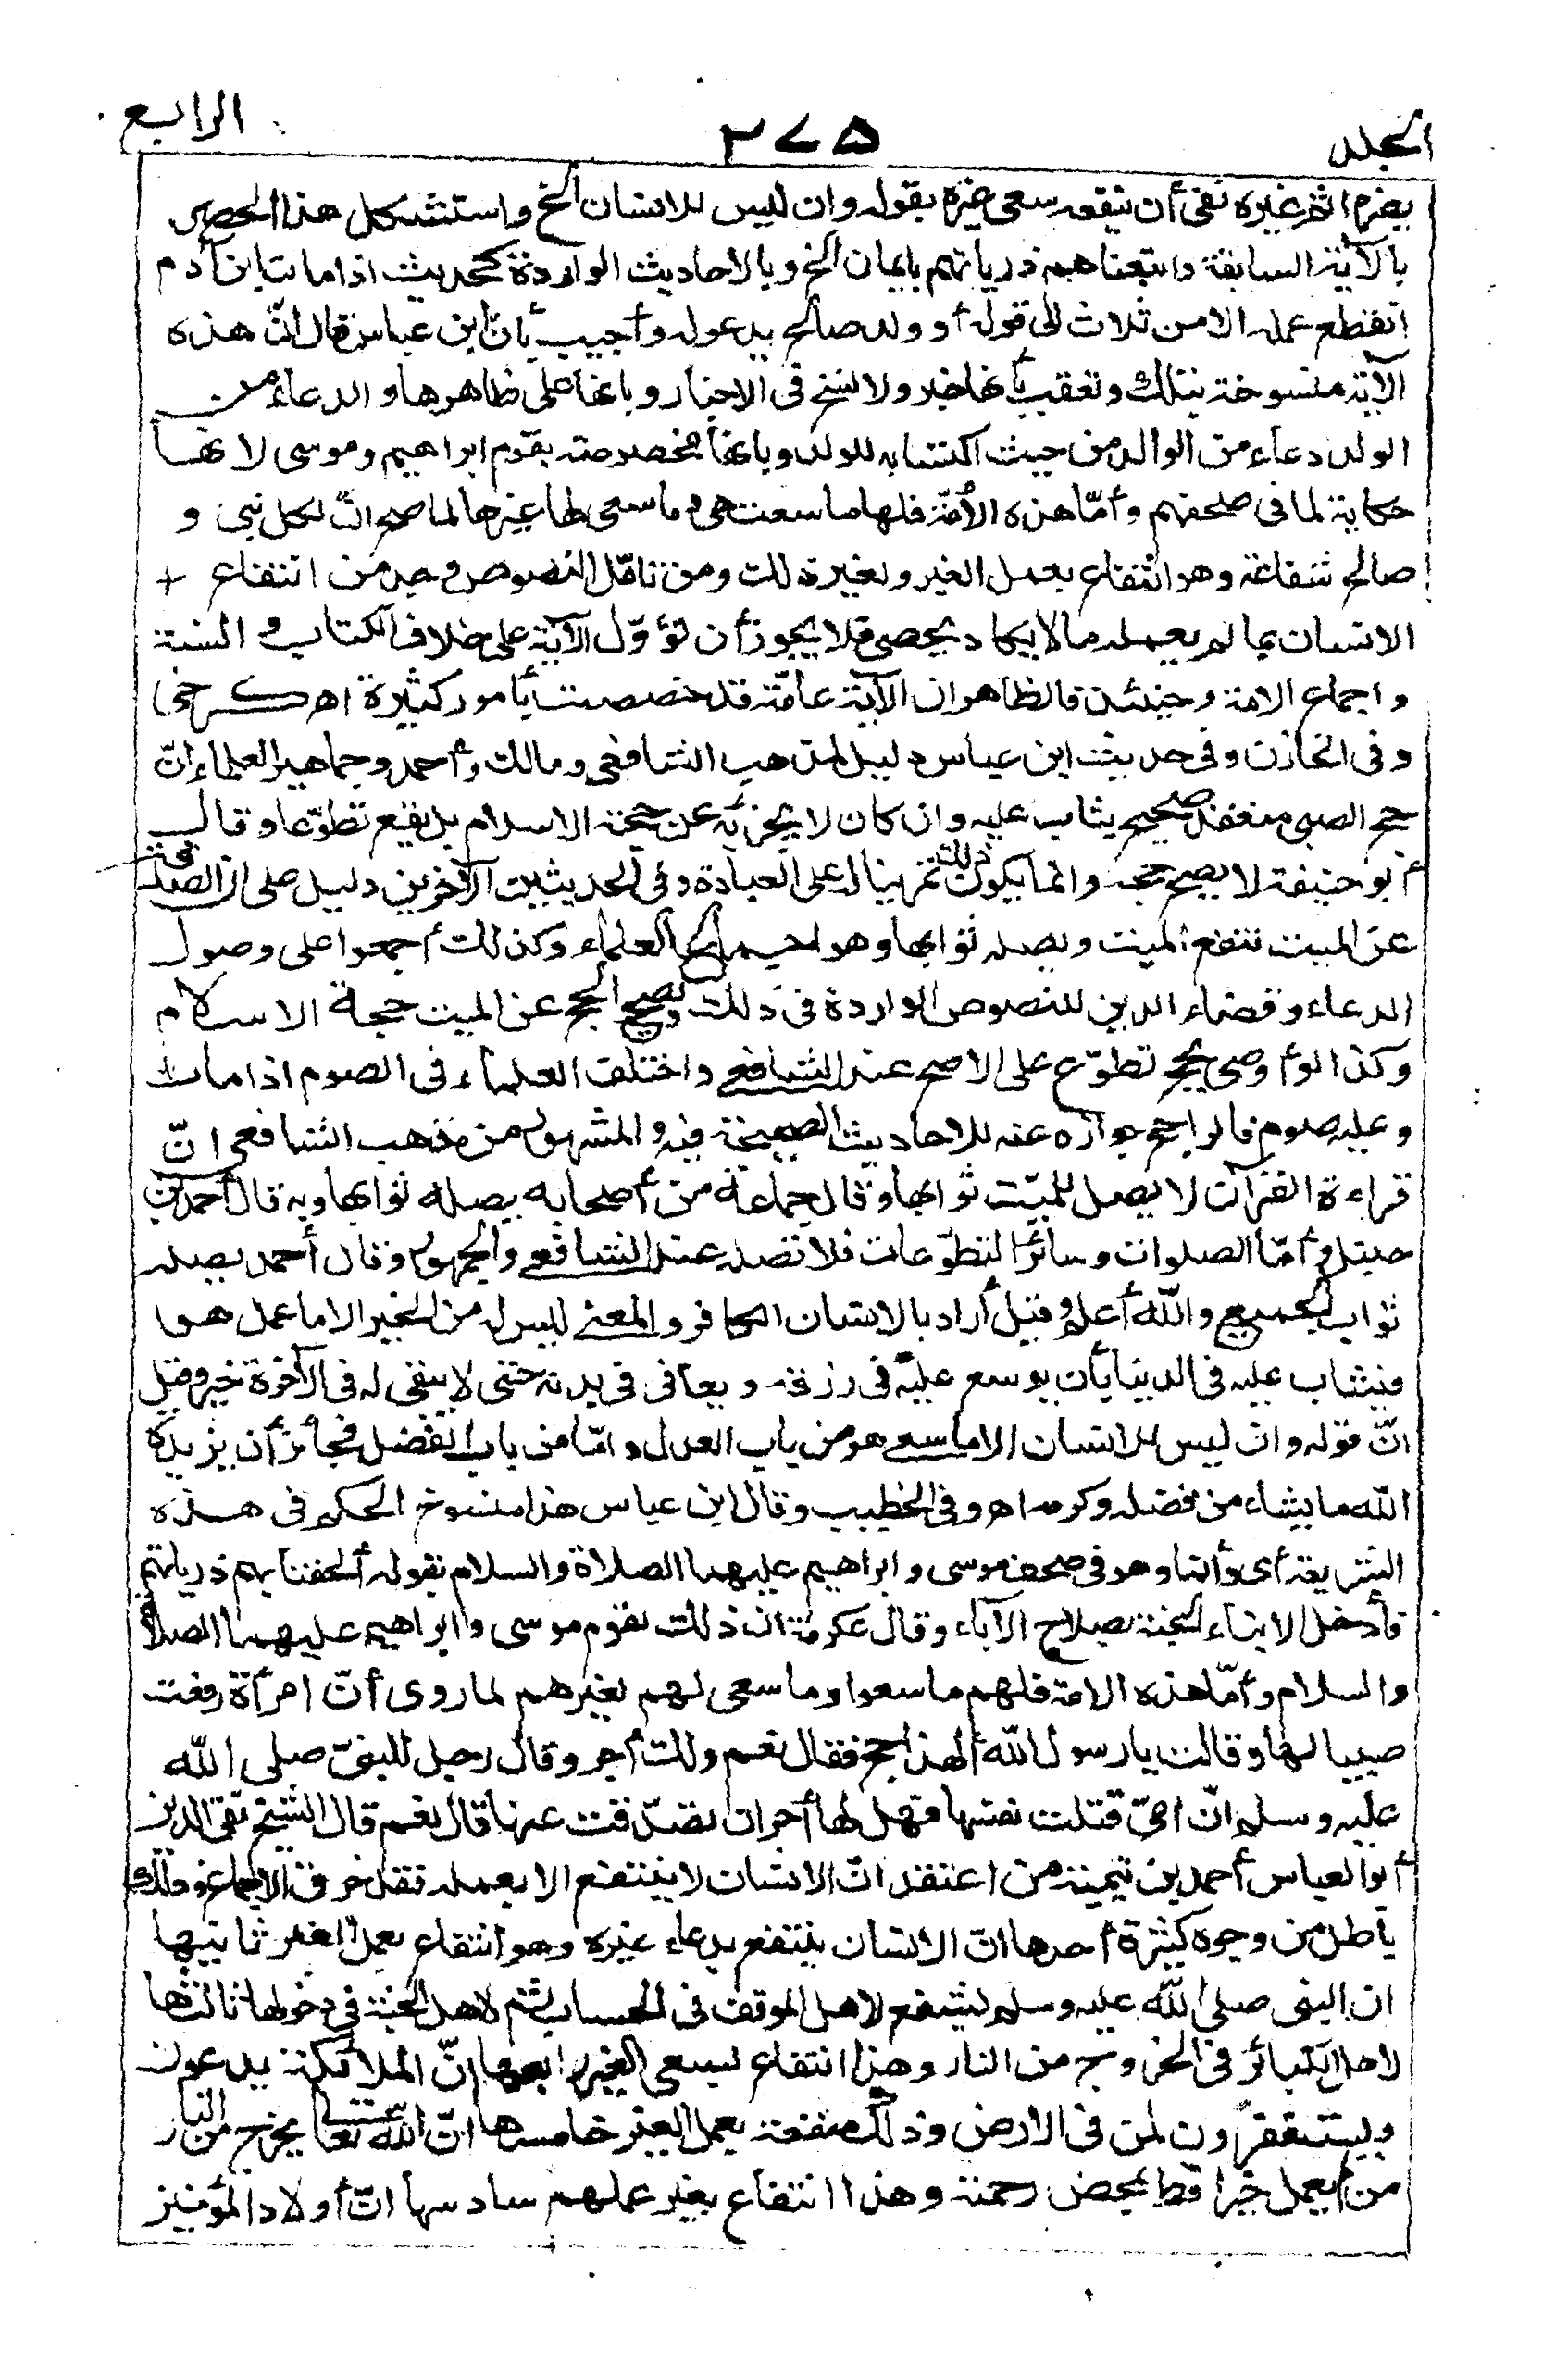 المجلد ٢٧٥ الرابع
يضره اثم غيره نفى أن ينفعه سعى غيره بقوله وان ليس للانسان الخ واستشكل هذا الحصر
بالآية السابقة واتبعناهم ذرياتهم بايمان الخ وبالاحاديث الواردة كحديث اذا مات ابن آدم
انقطع عمله الا من ثلاث الى قوله أو ولد صالح يدعو له وأجيب بأن ابن عباس قال انّ هذه
الآية منسوخة بتلك وتعقب بأنها خبر ولا نسخ فى الاخبار وبانها على ظاهرها والدعاء من
الولد دعاء من الوالد من حيث اكتسابه للولد وبانها مخصوصة بقوم ابراهيم وموسى لانها
حكاية لما فى صحفهم وأمّا هذه الأمّة فلها ما سعت هى وما سعى لها غيرها لما صح انّ لكل نبى و
صالح شفاعة وهو انتفاع بعمل الغير ولغير ذلك ومن تامّل النصوص وجد من انتفاع +
الانسان بما لم يعمله ما لا يكاد يحصى فلا يجوز أن تؤوّل الآية على خلاف الكتاب و السنة
واجماع الامة وحينئذ فالظاهر ان الآية عامّة قد خصصت بأمور كثيرة اه كرخى
وفى الخازن وفى حديث ابن عباس دليل لمذهب الشافعى ومالك وأحمد وجماهير العلماء انّ
حج الصبى منعقد صحيح يثاب عليه وان كان لا يجزئه عن حجة الاسلام بل يقع تطوّعا وقال
أبو حنيفة لا يصح حجه وانما يكون ذلك تمرينا له على العبادة وفى الحديثين الآخرين دليل على ان الصدقة
عن الميت تنفع الميت ويصله ثوابها وهو اجماع العلماء وكذلك أجمعوا على وصول
الدعاء وقضاء الدين للنصوص الواردة فى ذلك ويصح الحج عن الميت حجة الاسلام
وكذا لو أوصى بحج تطوّع على الاصح عند الشافعى واختلف العلماء فى الصوم اذا مات
وعليه صوم فالراجح جوازه عنه للاحاديث الصحيحة فيه والمشهور من مذهب الشافعى انّ
قراءة القرآن لا يصل للميّت ثوابها وقال جماعة من أصحابه يصله ثوابها وبه قال أحمد بن
حنبل وأمّا الصلوات وسائر التطوّعات فلا تصله عند الشافعى والجمهور وقال أحمد يصله
ثواب الجميع والله أعلم وقيل أراد بالانسان الكافر والمعنى ليس له من الخير الا ما عمل هو
فيثاب عليه فى الدنيا بأن يوسع عليه فى رزقه ويعافى فى بدنه حتى لا يبقى له فى الآخرة خير وقيل
انّ قوله وان ليس للانسان الا ما سعى هو من باب العدل وامّا من باب الفضل فجائز أن يزيده
الله ما يشاء من فضله وكرمه اه وفى الخطيب وقال ابن عباس هذا منسوخ الحكم فى هذه
الشريعة أى وانما هو فى صحف موسى وابراهيم عليهما الصلاة والسلام بقوله ألحقنا بهم ذرياتهم
فأدخل الابناء الجنة بصلاح الآباء وقال عكرمة ان ذلك لقوم موسى وابراهيم عليهما الصلاة
والسلام وأمّا هذه الامة فلهم ما سعوا وما سعى لهم غيرهم لما روى أنّ امرأة رفعت
صبيا لها وقالت يا رسول الله ألهذا حج فقال نعم ولك أجر وقال رجل للنبىّ صلى الله
عليه وسلم انّ امىّ قتلت نفسها فهل لها أجر ان تصدّقت عنها قال نعم قال الشيخ تقى الدين
أبو العباس أحمد بن تيمية من اعتقد انّ الانسان لا ينتفع الا بعمله فقد خرق الاجماع وذلك
باطل من وجوه كثيرة أحدها انّ الانسان ينتفع بدعاء غيره وهو انتفاع بعمل الغير ثانيها
ان النبى صلى الله عليه وسلم يشفع لاهل الموقف فى الحساب ثم لاهل الجنة فى دخولها ثالثها
لاهل الكبائر فى الخروج من النار وهذا انتفاع بسعى الغير رابعها انّ الملائكة يدعون
ويستغفرون لمن فى الارض وذلك منفعة بعمل الغير خامسها انّ الله تعالى يخرج من النار
من لم يعمل خيرا قط بمحض رحمته وهذا انتفاع بغير عملهم سادسها انّ أولاد المؤمنين